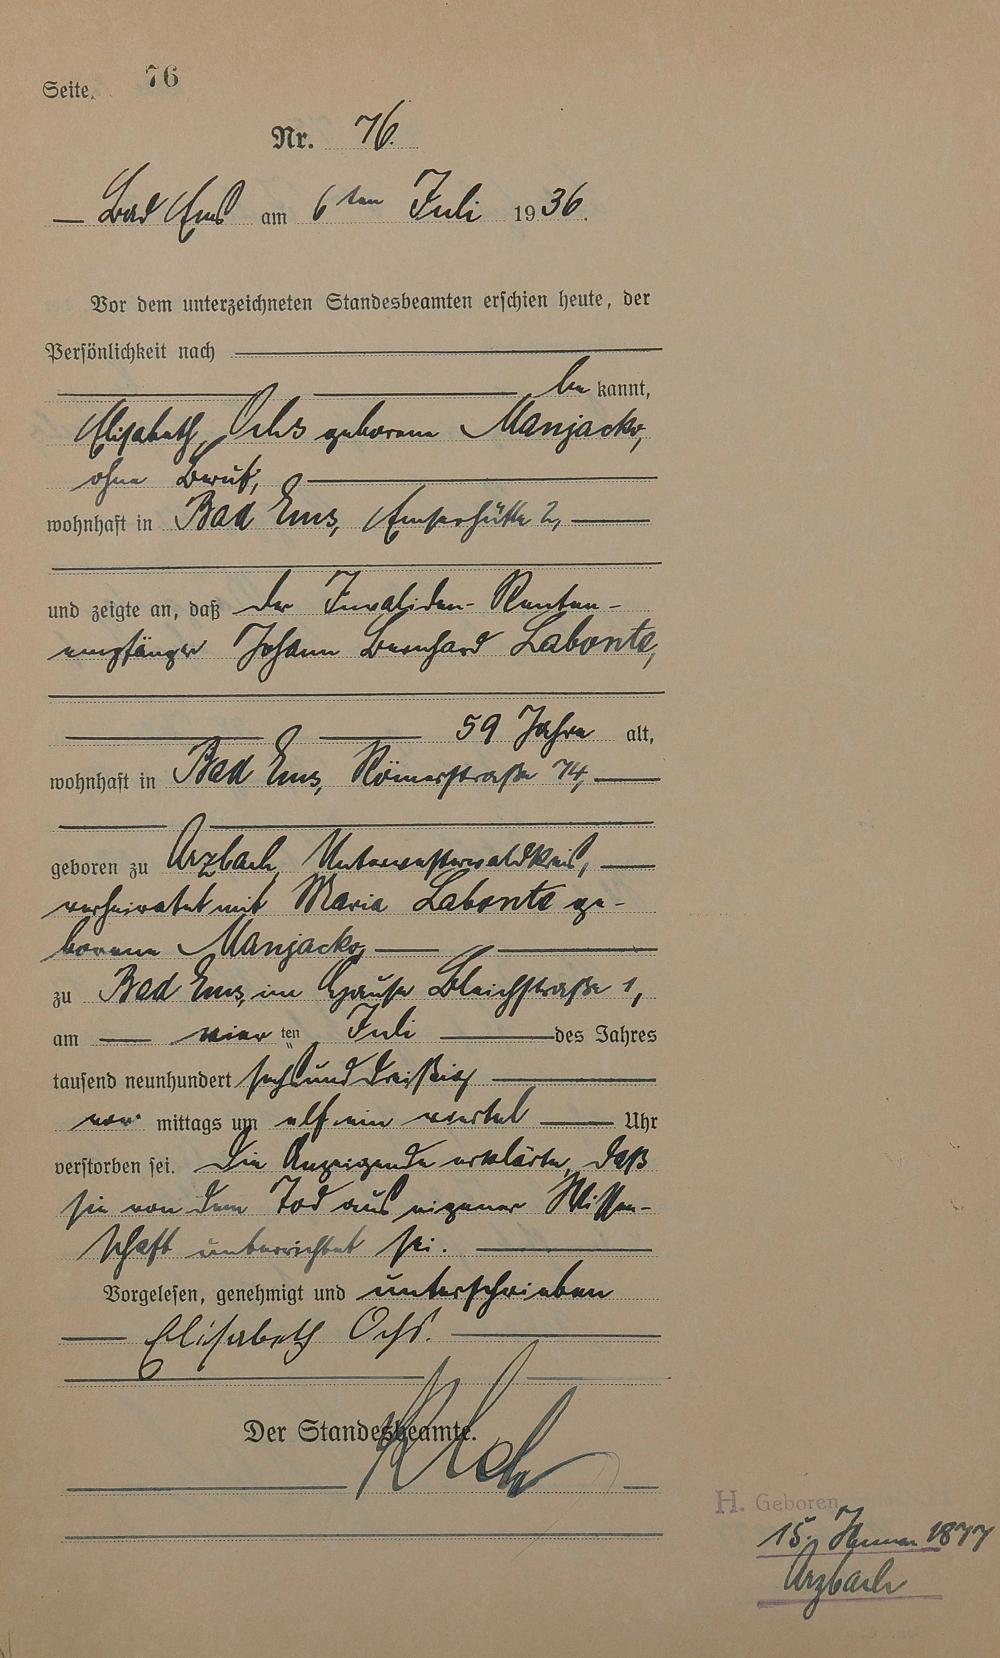 Seite. 76
Nr. 76.
Bad Ems am 6ten Juli 1936.
Vor dem unterzeichneten Standesbeamten erschien heute, der
Persönlichkeit nach
be kannt,
Elisabeth Ochs geborene Manjacko,
ohne Beruf,
wohnhaft in Bad Ems, Emserhütte 2,
und zeigte an, daß der Invaliden-Renten-
empfänger Johann Bernhard Labonte,
59 Jahre alt,
wohnhaft in Bad Ems, Römerstraße 74,
geboren zu Arzbach, Unterwesterwaldkreis,
verheiratet mit Maria Labonte ge-
borene Manjacko,
zu Bad Ems, im Hause Bleichstraße 1,
am vier ten Juli des Jahres
tausend neunhundert sechsunddreißig
vor mittags um elf ein viertel Uhr
verstorben sei. Die Anzeigende erklärte, daß
sie von dem Tod aus eigener Wissen-
schaft unterrichtet sei.
Vorgelesen, genehmigt und unterschrieben
Elisabeth Ochs.
Der Standesbeamte.
H. Geboren
15. Januar 1877
Arzbach